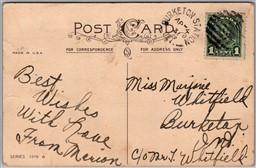 POST CARD
MADE IN U.S.A.
FOR CORRESPONDENCE
FOR ADDRESS ONLY
BURKETON STA
AP
1
1
Best
Wishes
With Love
From Merion
Miss Marjorie
Whitfield
Burketon
Ont.
c/o Mr. T. Whitfield
SERIES 1378 B